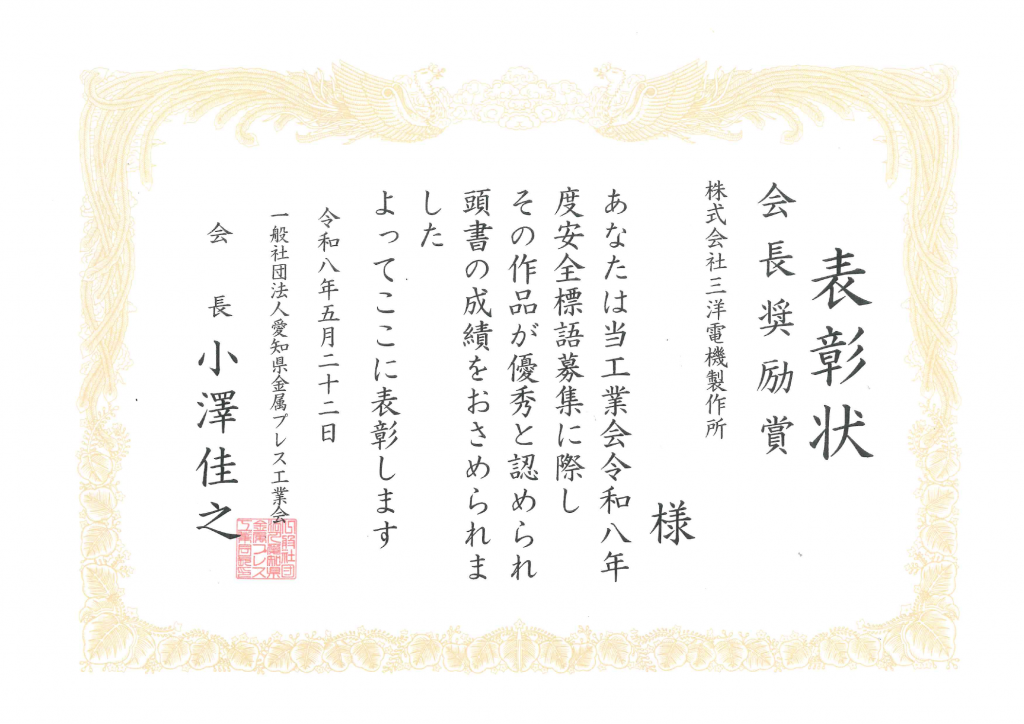 表彰状
会長奨励賞
株式会社三洋電機製作所
様
あなたは当工業会令和八年
度安全標語募集に際し
その作品が優秀と認められ
頭書の成績をおさめられま
した
よってここに表彰します
令和八年五月二十二日
一般社団法人愛知県金属プレス工業会
会長 小澤佳之